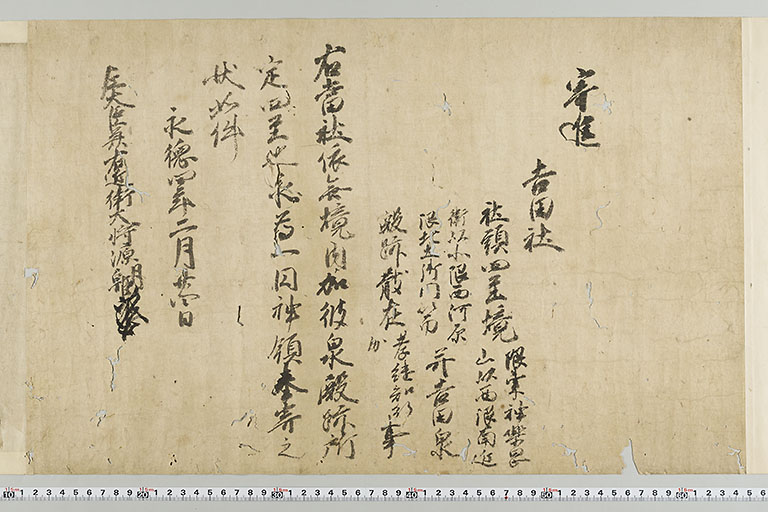 寄進
吉田社
社頭四至境 限東神楽岡
山以西限南近
衛以北限西河原
限北土御門以南 并吉田泉
殿跡散在 等任知行事
右当社依無境内加彼泉殿跡所
定四至也永為一円神領奉寄之
状如件
永徳四年二月廿四日
左大臣兼右近衛大将源朝臣